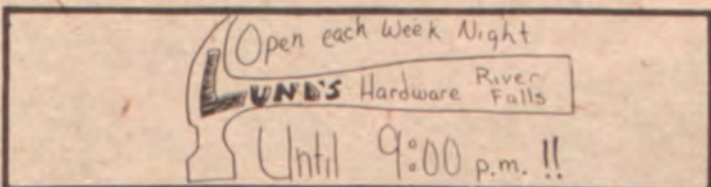 Open each Week Night
LUND'S Hardware River Falls
Until 9:00 p.m. !!